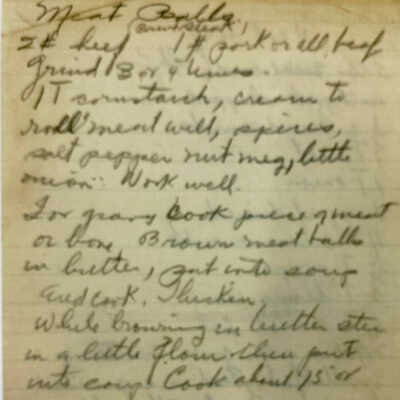 Meat Balls.
round steak,
2# beef 1# pork or all beef
Grind 3 or 4 times.
1 T cornstarch, cream to
roll meat well, spices,
salt pepper nutmeg, little
onion. Work well.
For gravy cook piece of meat
or bone, Brown meat balls
in butter, put into soup
and cook. Thicken,
While browning in butter stir
in a little flour then put
into soup. Cook about 15 or